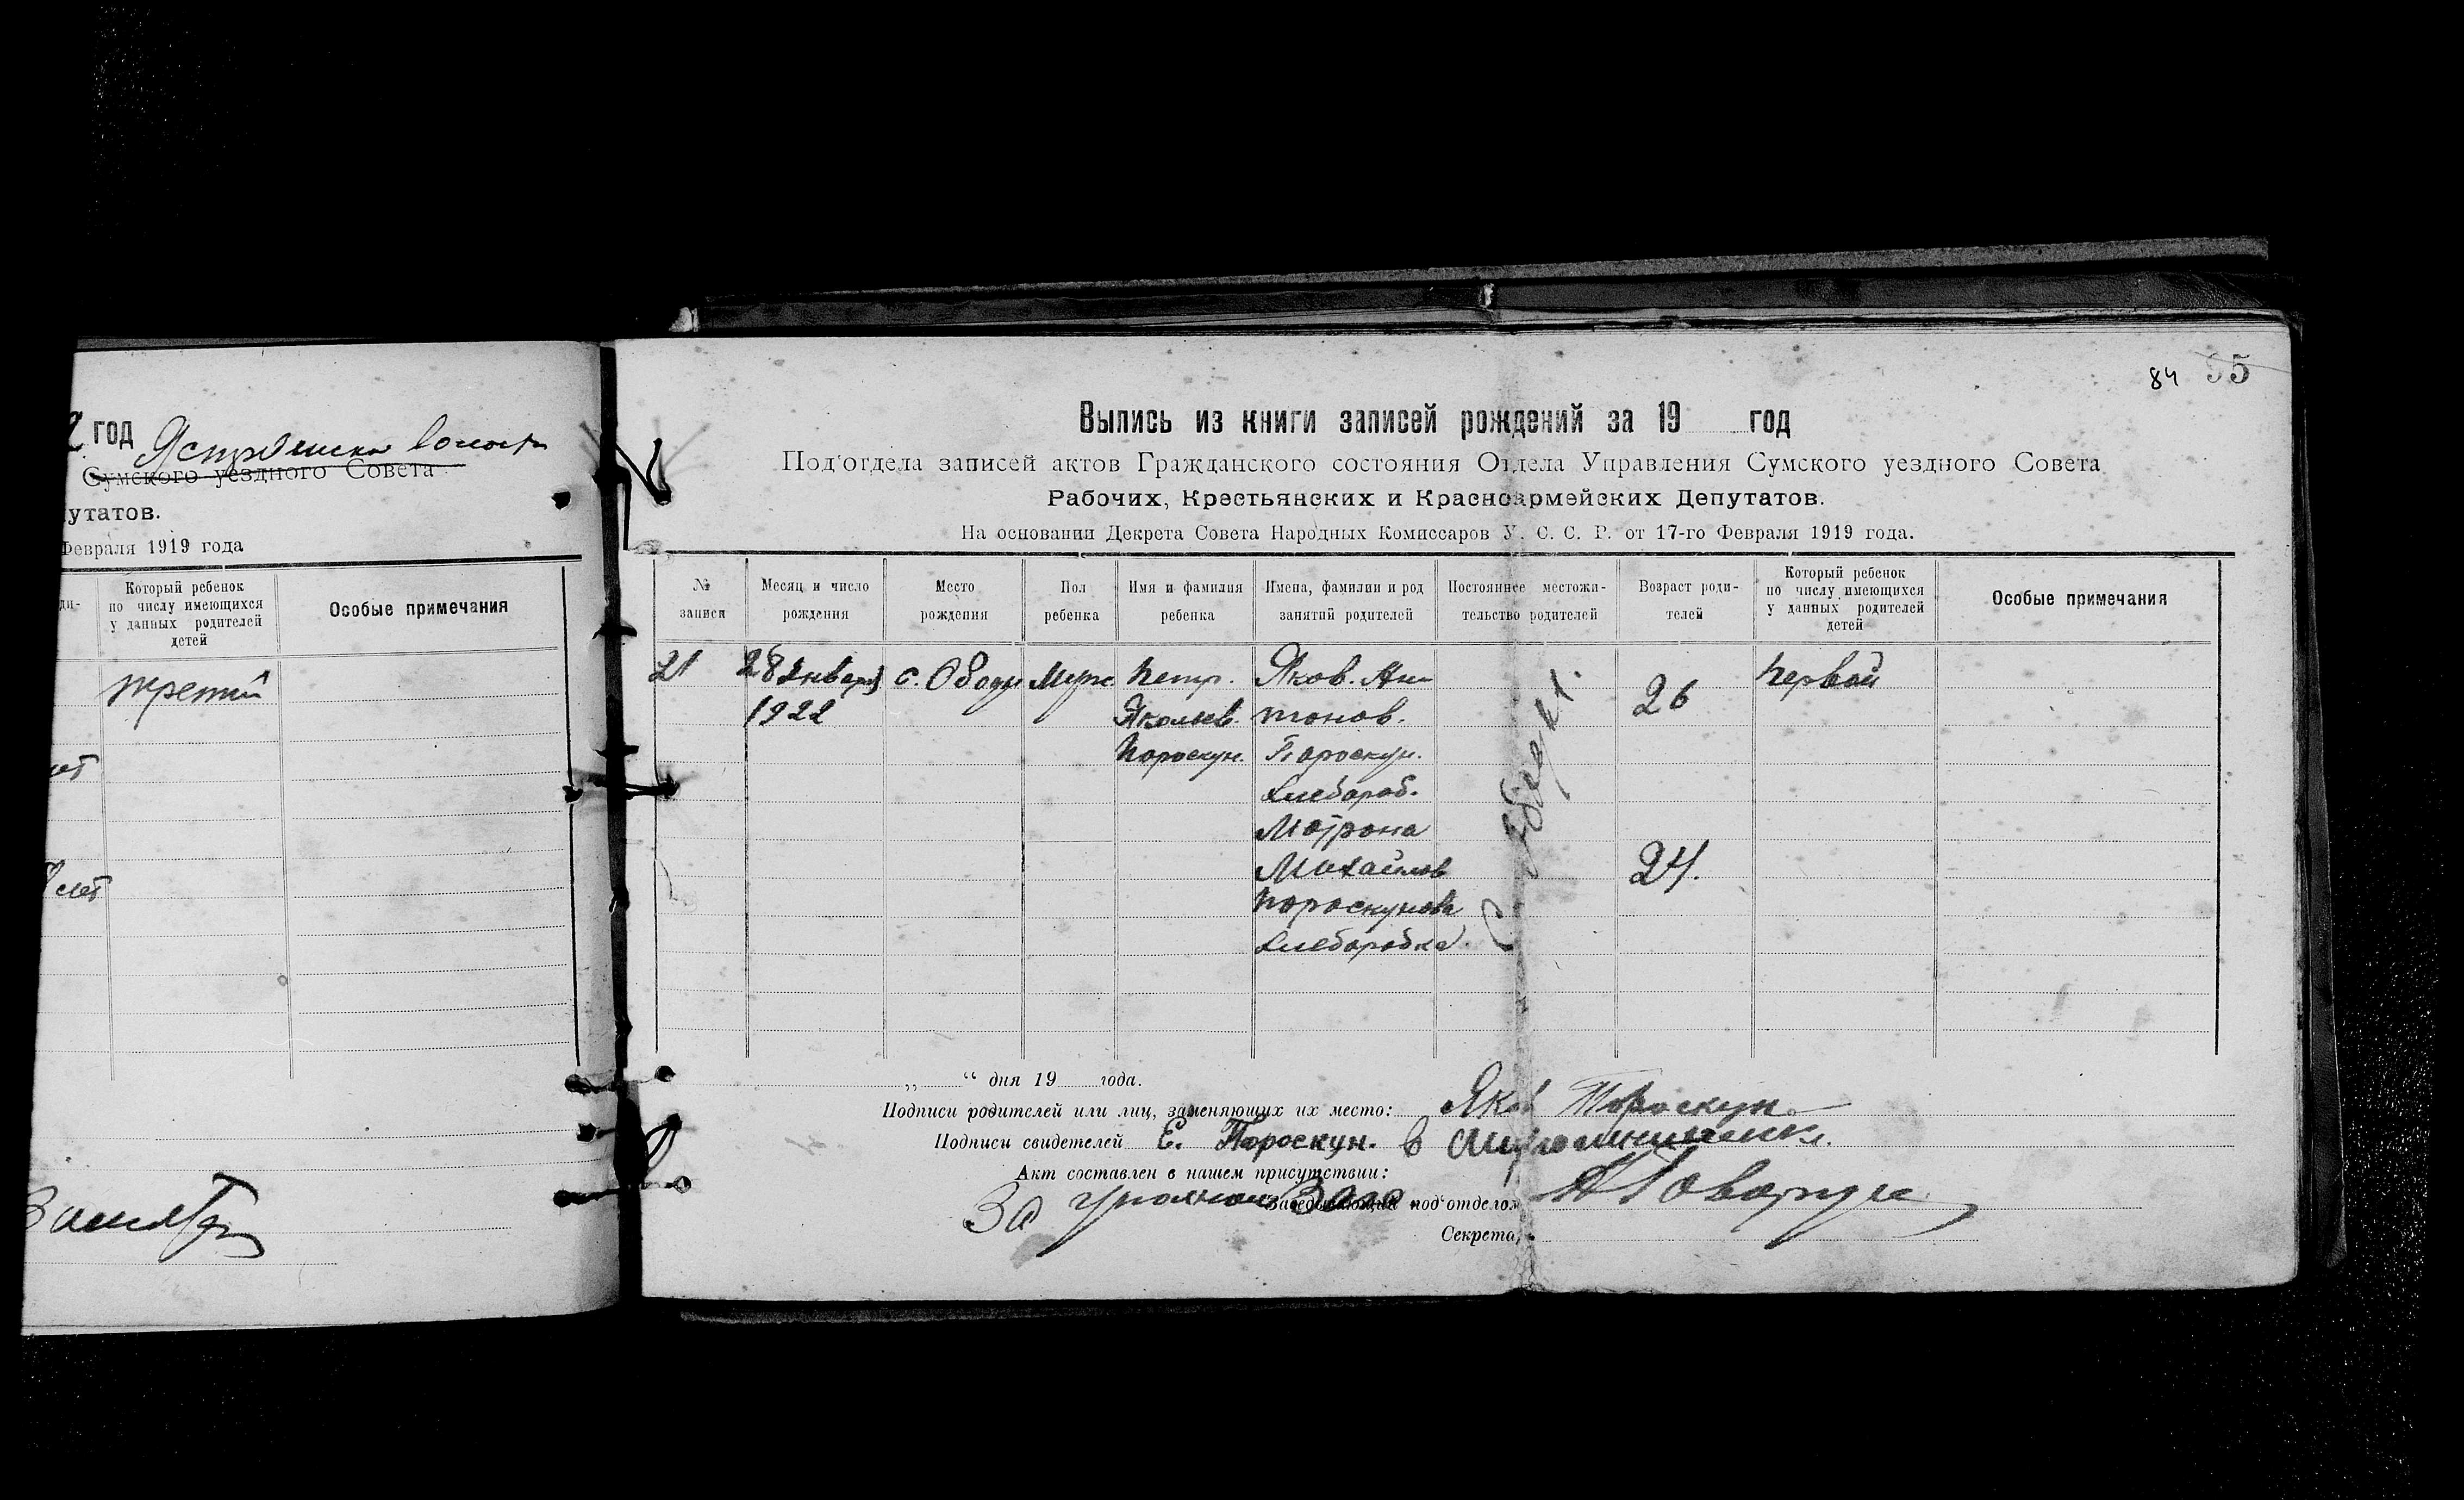 год
Сумского уездного Совета
утатов.
Февраля 1919 года
Который ребенок
по числу имеющихся
у данных родителей
детей
Особые примечания
третий
лет
84 95
Выпись из книги записей рождений за 19 год
Под'отдела записей актов Гражданского состояния Отдела Управления Сумского уездного Совета
Рабочих, Крестьянских и Красноармейских Депутатов.
На основании Декрета Совета Народных Комиссаров У. С. С. Р. от 17-го Февраля 1919 года.
№ записи
Месяц и число рождения
Место рождения
Пол ребенка
Имя и фамилия ребенка
Имена, фамилии и род занятий родителей
Постоянное местожи-
тельство родителей
Возраст роди-
телей
Который ребенок
по числу имеющихся
у данных родителей
детей
Особые примечания
21 28 Января с. Ободы Муж. Петр. Яков. Ан- 26 первый
1922 Яковлев. тонов.
Пороскун. Пороскун.
Хлебороб.
Мотрона
Михайлов 24.
Пороскунова
Хлеборобка
„ “ дня 19 года.
Подписи родителей или лиц, заменяющих их место: Яков Пороскун
Подписи свидетелей Е. Пороскун.
Акт составлен в нашем присутствии:
За Заведывающий под'отделом
Секретарь